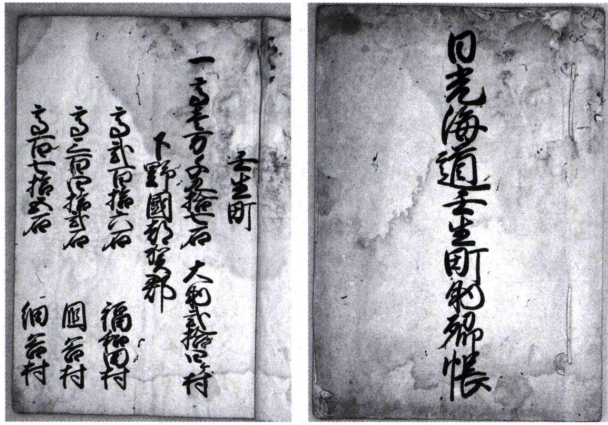 日光海道壬生町助郷帳
壬生町
一高壱万千五拾七石 大助弐拾四ヶ村
下野國都賀郡
高弐百拾六石 福和田村
高三百四拾弐石 國谷村
高百七拾五石 細谷村